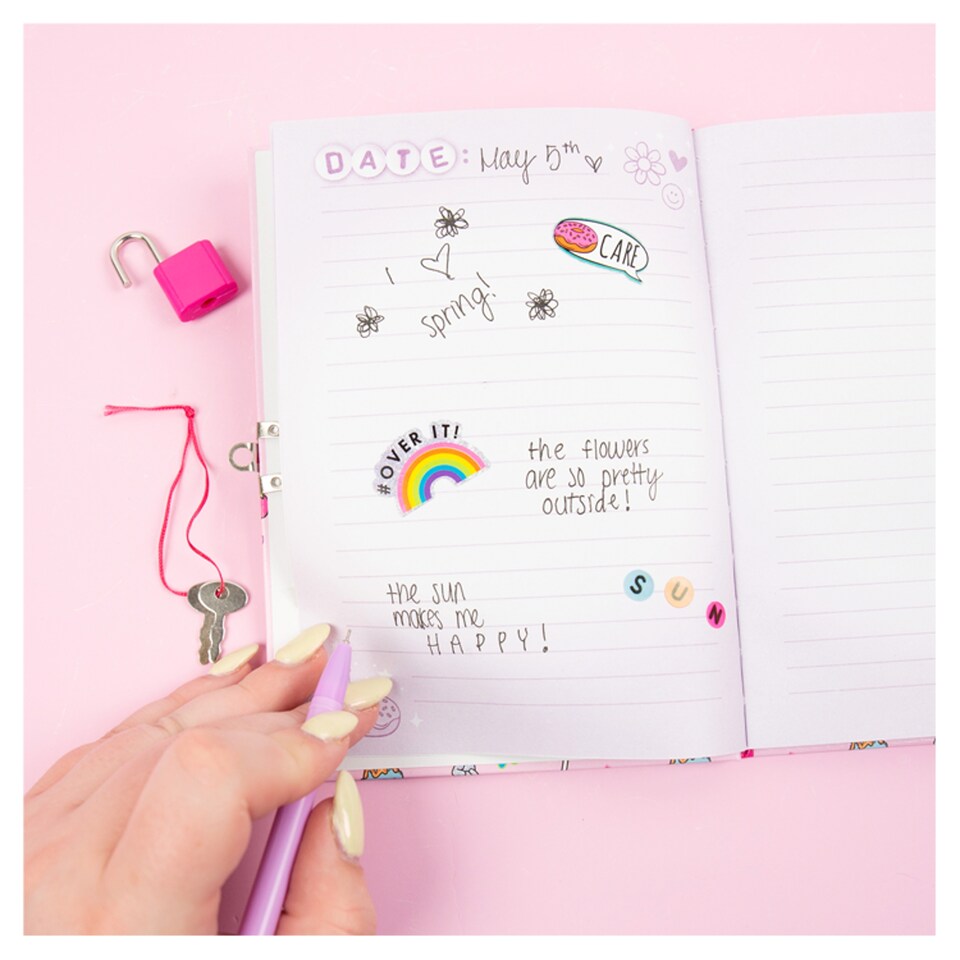 DATE: May 5th
CARE
I
spring!
#OVER IT!
the flowers
are so pretty
outside!
SUN
the sun
makes me
HAPPY!